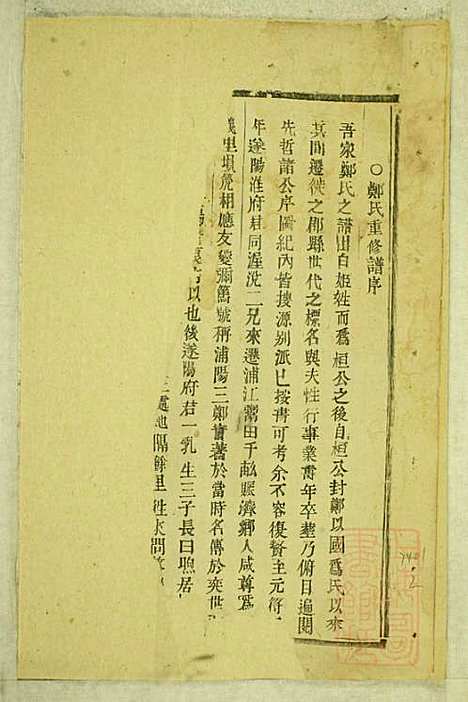 ○鄭氏重修譜序
吾家鄭氏之譜出自姬姓而爲桓公之後自桓公封鄭以國爲氏以來
其間遷徙之郡縣世代之標名與夫性行事業壽年卒塟乃俯目遍閱
先哲諸公序圖紀內皆搜源別派已按書可考余不容復贅主元符
年遂陽淮府君同渥況二兄來遷浦江鬻田千畝賑濟鄉人咸尊爲
義里塤箎相應友愛彌篤號稱浦陽三鄭實著於當時名傳於奕世
以也後遂陽府君一乳生三子長曰照居
處地隔餘里往來問
7401
2